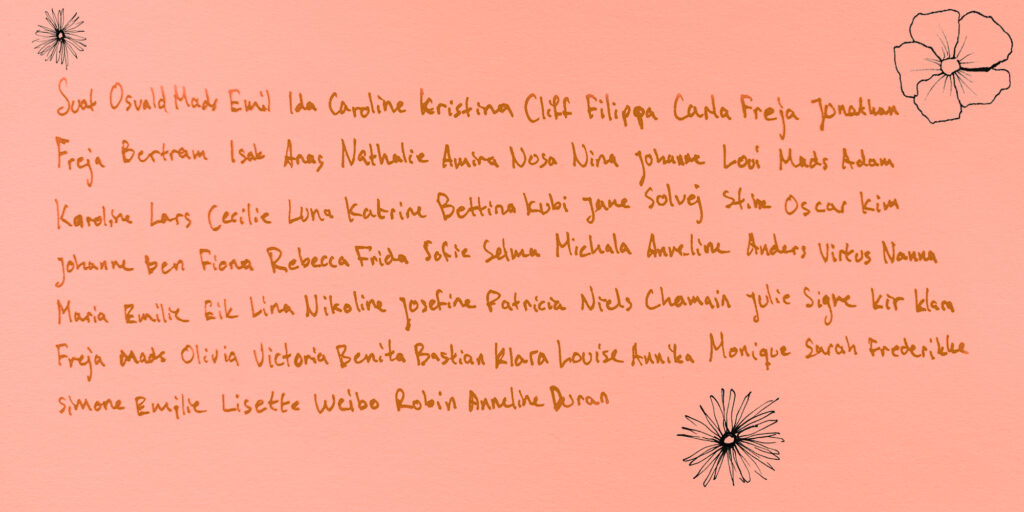 Suat Osvald Mads Emil Ida Caroline Kristina Cliff Filippa Carla Freja Jonathan
Freja Bertram Isak Anas Nathalie Amira Nosa Nina Johanne Lovi Mads Adam
Karoline Lars Cecilie Luna Katrine Bettina Kubi Jane Solvej Stine Oscar Kim
Johanne Ben Fiona Rebecca Frida Sofie Selma Michala Anneline Anders Virtus Nanna
Maria Emilie Eik Lina Nikoline Josefine Patricia Niels Chamain Julie Signe Kir Klara
Freja Mads Olivia Victoria Benita Bastian Klara Louise Annika Monique Sarah Frederikke
Simone Emilie Lisette Weibo Robin Anneline Duran